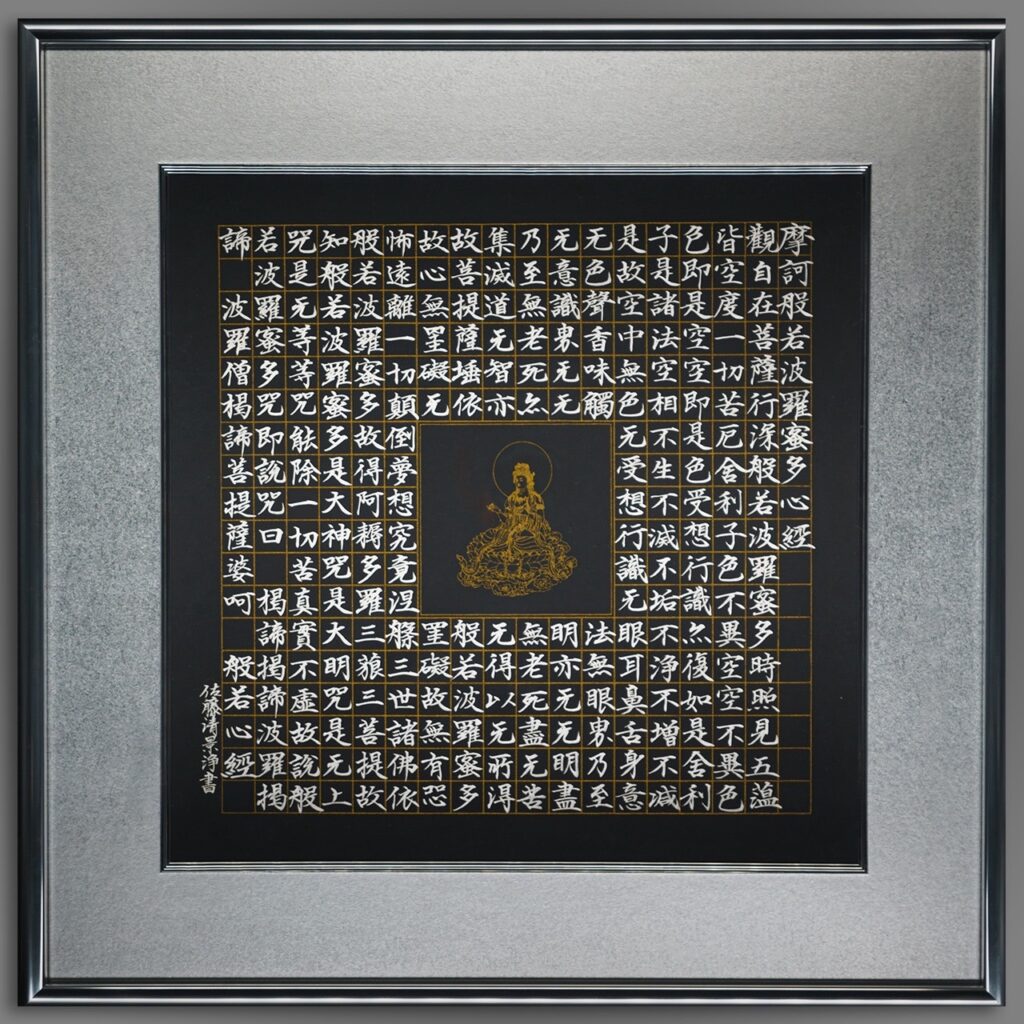 摩訶般若波羅蜜多心經
觀自在菩薩行深般若波羅蜜多時照見五蘊
皆空度一切苦厄舍利子色不異空空不異色
色即是空空即是色受想行識亦復如是舍利
子是諸法空相不生不滅不垢不淨不增不減
是故空中無色无受想行識无眼耳鼻舌身意
无色聲香味觸法無眼界乃至
无意識界无无明亦无无明盡
乃至無老死亦無老死盡无苦
集滅道无智亦无得以无所得
故菩提薩埵依般若波羅蜜多
故心無罣礙无罣礙故無有恐
怖遠離一切顛倒夢想究竟涅槃三世諸佛依
般若波羅蜜多故得阿耨多羅三藐三菩提故
知般若波羅蜜多是大神咒是大明咒是无上
咒是无等等咒能除一切苦真實不虛故說般
若波羅蜜多咒即說咒曰 揭諦揭諦波羅揭
諦 波羅僧揭諦菩提薩婆呵 般若心經
佐藤清景浄書